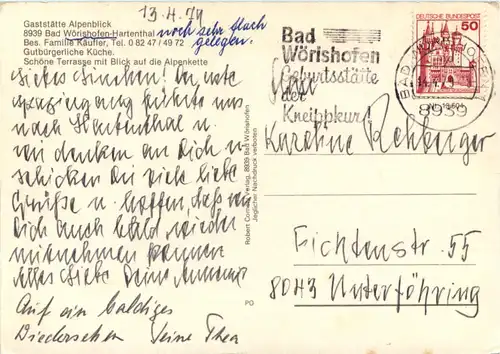 13.4.79
Gaststätte Alpenblick
8939 Bad Wörishofen-Hartenthal noch sehr flach
Bes. Familie Käufler, Tel. 0 82 47 / 49 72 gelegen.
Gutbürgerliche Küche.
Schöne Terrasse mit Blick auf die Alpenkette
Liebes Linchen! Der erste
Spaziergang führte uns
nach Hartenthal u.
wir denken an Dich u.
schicken Dir viele liebe
Grüße u. hoffen, daß wir
Dich auch bald wieder
mitnehmen können
Alles Liebe Deine
Auf ein baldiges
Wiedersehen Deine Thea
Robert Verlag, 8939 Bad Wörishofen
Jeglicher Nachdruck verboten
PO
Bad
Wörishofen
Geburtsstätte
der
Kneippkur!
DEUTSCHE BUNDESPOST
50
8939
Frau
Karoline Rehberger
Fichtenstr. 55
8043 Unterföhring